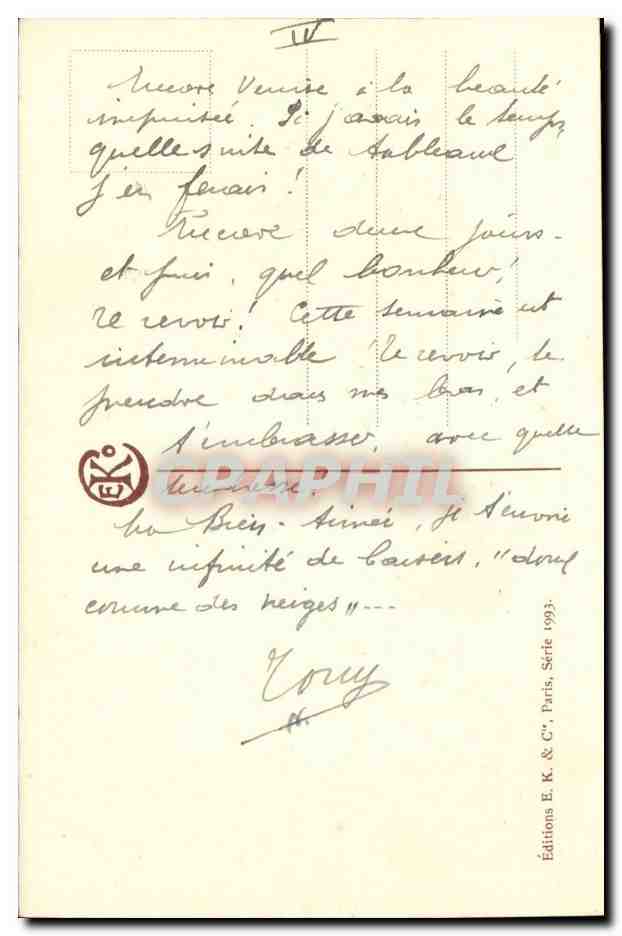 IV
Encore Venise à la beauté
infinie. Si j'avais le temps,
quelle suite de tableaux
j'en ferais !
Encore deux jours -
et puis, quel bonheur !
Te revoir ! Cette semaine est
interminable ! Te revoir, te
prendre dans mes bras, et
t'embrasser, avec quelle
tendresse !
EK°
GRAPHIL
Ma Bien-Aimée, je t'envoie
une infinité de baisers, "doux
comme des neiges" ---
Tony
Éditions E. K. & Cie, Paris, Série 1993.